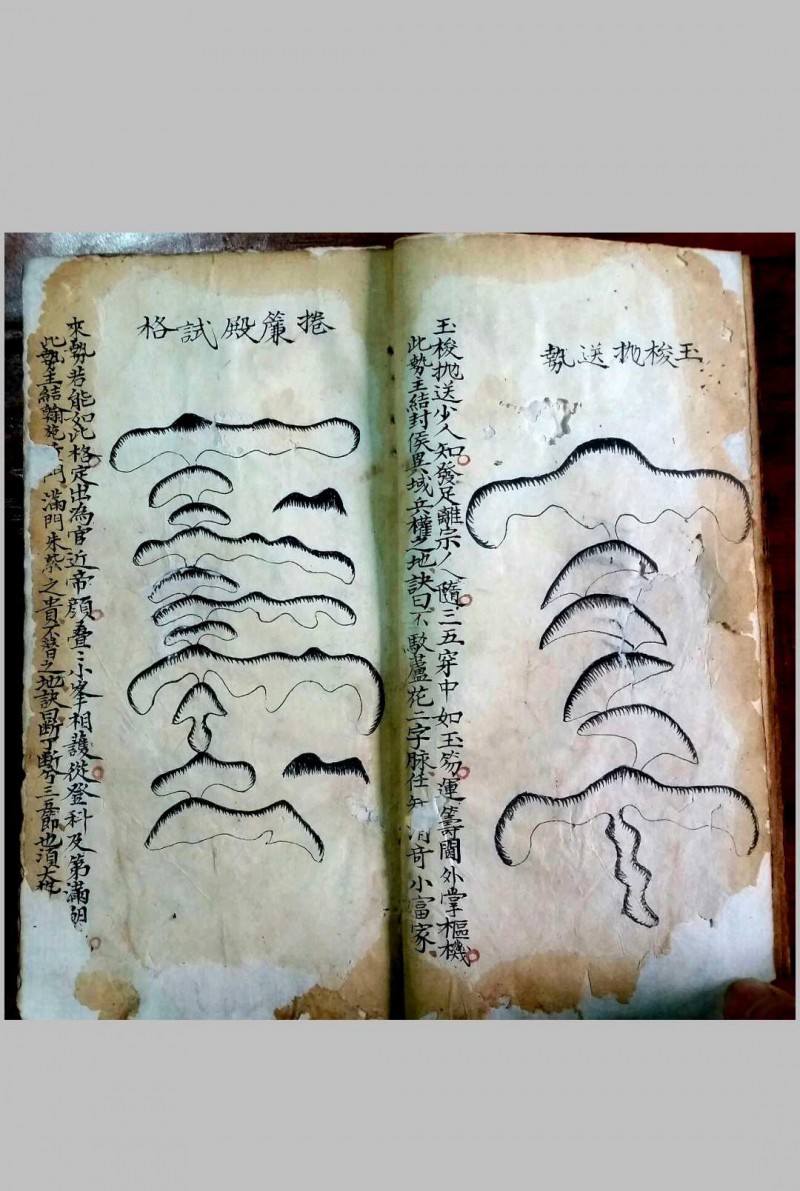 玉梭抛送勢
玉梭抛送少人知發足離宗八隨三五穿中如玉笏運籌閫外掌樞機
此勢主結封侯異域兵權之地訣曰不馭蘆花二字脉任 消奇小富家
捲簾殿試格
來勢若能如此格定出為官近帝顏叠〻小峯相護從登科及第滿朝
此勢主結翰苑 門滿門朱紫之貴不替之地訣曰断了断兮三五節也須大